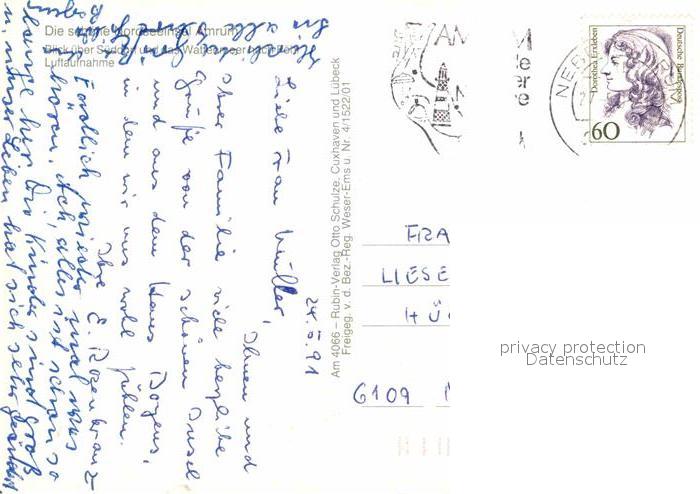 Die schöne Nordseeinsel Amrum
Blick über Süddorf und das Wattenmeer nach Föhr
Luftaufnahme
24.5.91
Liebe Frau Müller,
Ihnen und
Ihrer Familie viele herzliche
Grüße von der schönen Insel
und aus dem Haus
in dem wir uns wohl fühlen.
Ihre E. Rosenkranz
Ach, alles ist schon so
lange her. Die Kinder sind groß
u. unser Leben hat sich sehr geändert
Am 4066 - Rubin-Verlag Otto Schulze, Cuxhaven und Lübeck
Freigeg. v. d. Bez.-Reg. Weser-Ems u. Nr. 4/1522/01
AM
M
NEB
Dorothea Erxleben
Deutsche Bundespost
60
FRA
LIESE
HÜ
6109
privacy protection
Datenschutz